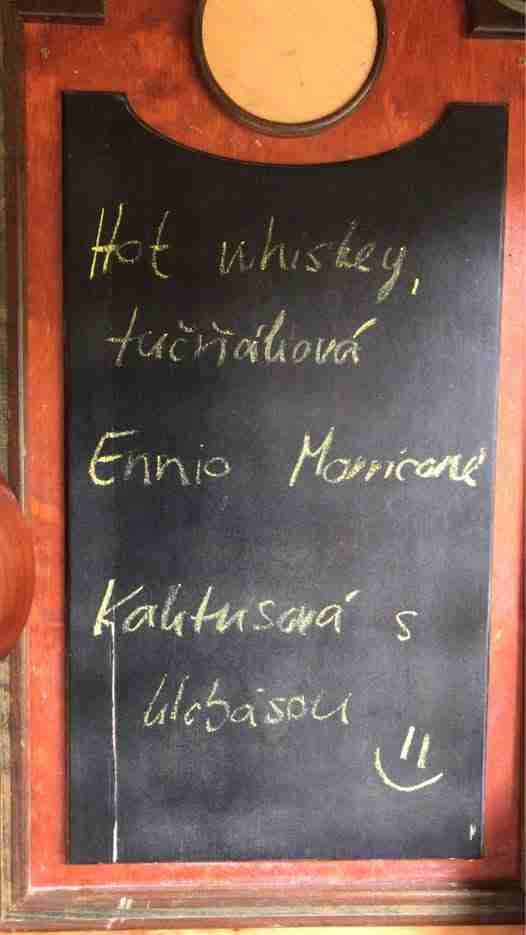 Hot whiskey,
tučňáková
Ennio Morricone
Kaktusová s
klobásou